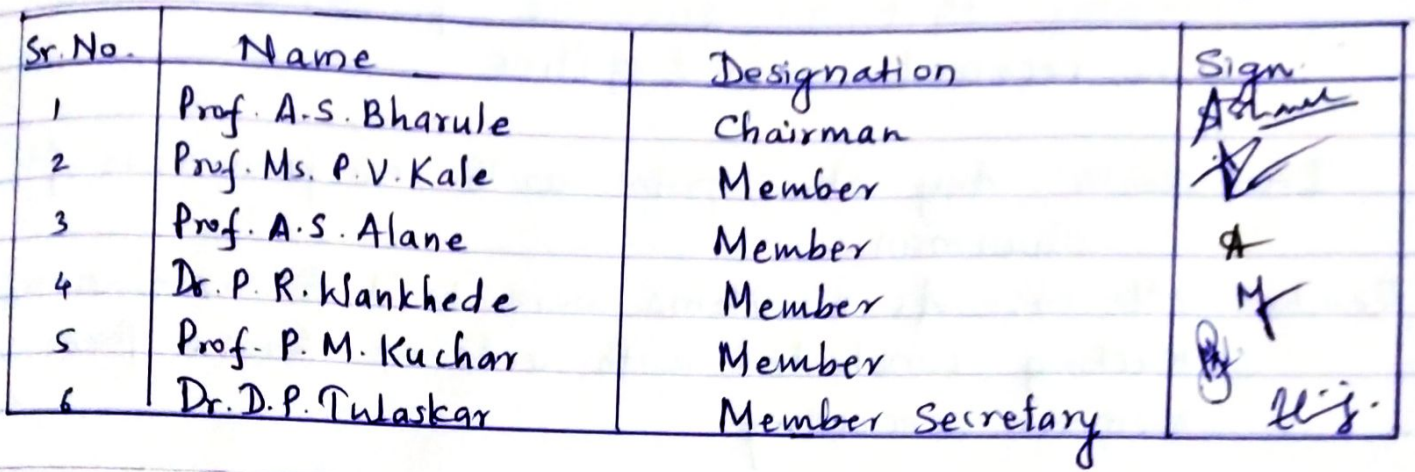 Sr. No. Name Designation Sign.
1 Prof. A.S. Bharule Chairman
2 Prof. Ms. P.V. Kale Member
3 Prof. A.S. Alane Member
4 Dr. P.R. Wankhede Member
5 Prof. P.M. Kuchar Member
6 Dr. D.P. Tulaskar Member Secretary